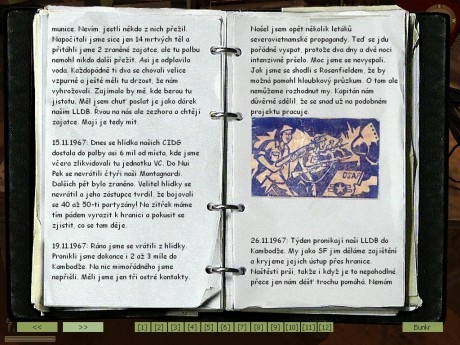 munice. Nevím, jestli někdo z nich přežil.
Napočítali jsme sice jen 14 mrtvých těl a
přitáhli jsme 2 zraněné zajatce, ale tu palbu
nemohl nikdo další přežít. Asi je odplavila
voda. Každopádně ti dva se chovali velice
vzpurně a ještě měli tu drzost, že nám
vyhrožovali. Zajímalo by mě, kde berou tu
jistotu. Měl jsem chuť poslat je jako dárek
našim LLDB. Řvou na nás ale zezhora a chtějí
zajatce. Mají je tedy mít.
15.11.1967: Dnes se hlídka našich CIDG
dostala do palby asi 6 mil od místa, kde jsme
včera zlikvidovali tu jednotku VC. Do Nui
Pek se nevrátili čtyři naši Montagnardi.
Dalších pět bylo zraněno. Velitel hlídky se
nevrátil a jeho zástupce tvrdil, že bojovali
se 40 až 50-ti partyzány! Na zítřek máme
tím pádem vyrazit k hranici a pokusit se
zjistit, co se tam děje.
19.11.1967: Ráno jsme se vrátili z hlídky.
Pronikli jsme dokonce i 2 až 3 míle do
Kambodže. Na nic mimořádného jsme
nepřišli. Měli jsme jen tři ostré kontakty.
Našel jsem opět několik letáků
severovietnamské propagandy. Teď se jdu
pořádně vyspat, protože dva dny a dvě noci
intenzivně pršelo. Moc jsme se nevyspali.
Jak jsme se shodli s Rosenfieldem, že by
možná pomohl hloubkový průzkum. O tom ale
nemůžeme rozhodnut my. Kapitán nám
důvěrně sdělil, že se snad už na podobném
projektu pracuje.
USAF
26.11.1967: Týden pronikají naši LLDB do
Kambodže. My jako SF jim děláme zajištění
a kryjeme jejich ústup přes hranice.
Naštěstí prší, takže i když je to nepohodlné
přece jen nám déšť trochu pomáhá. Nemám
<< >> [1] [2] [3] [4] [5] [6] [7] [8] [9] [10] [11] [12] Bunkr